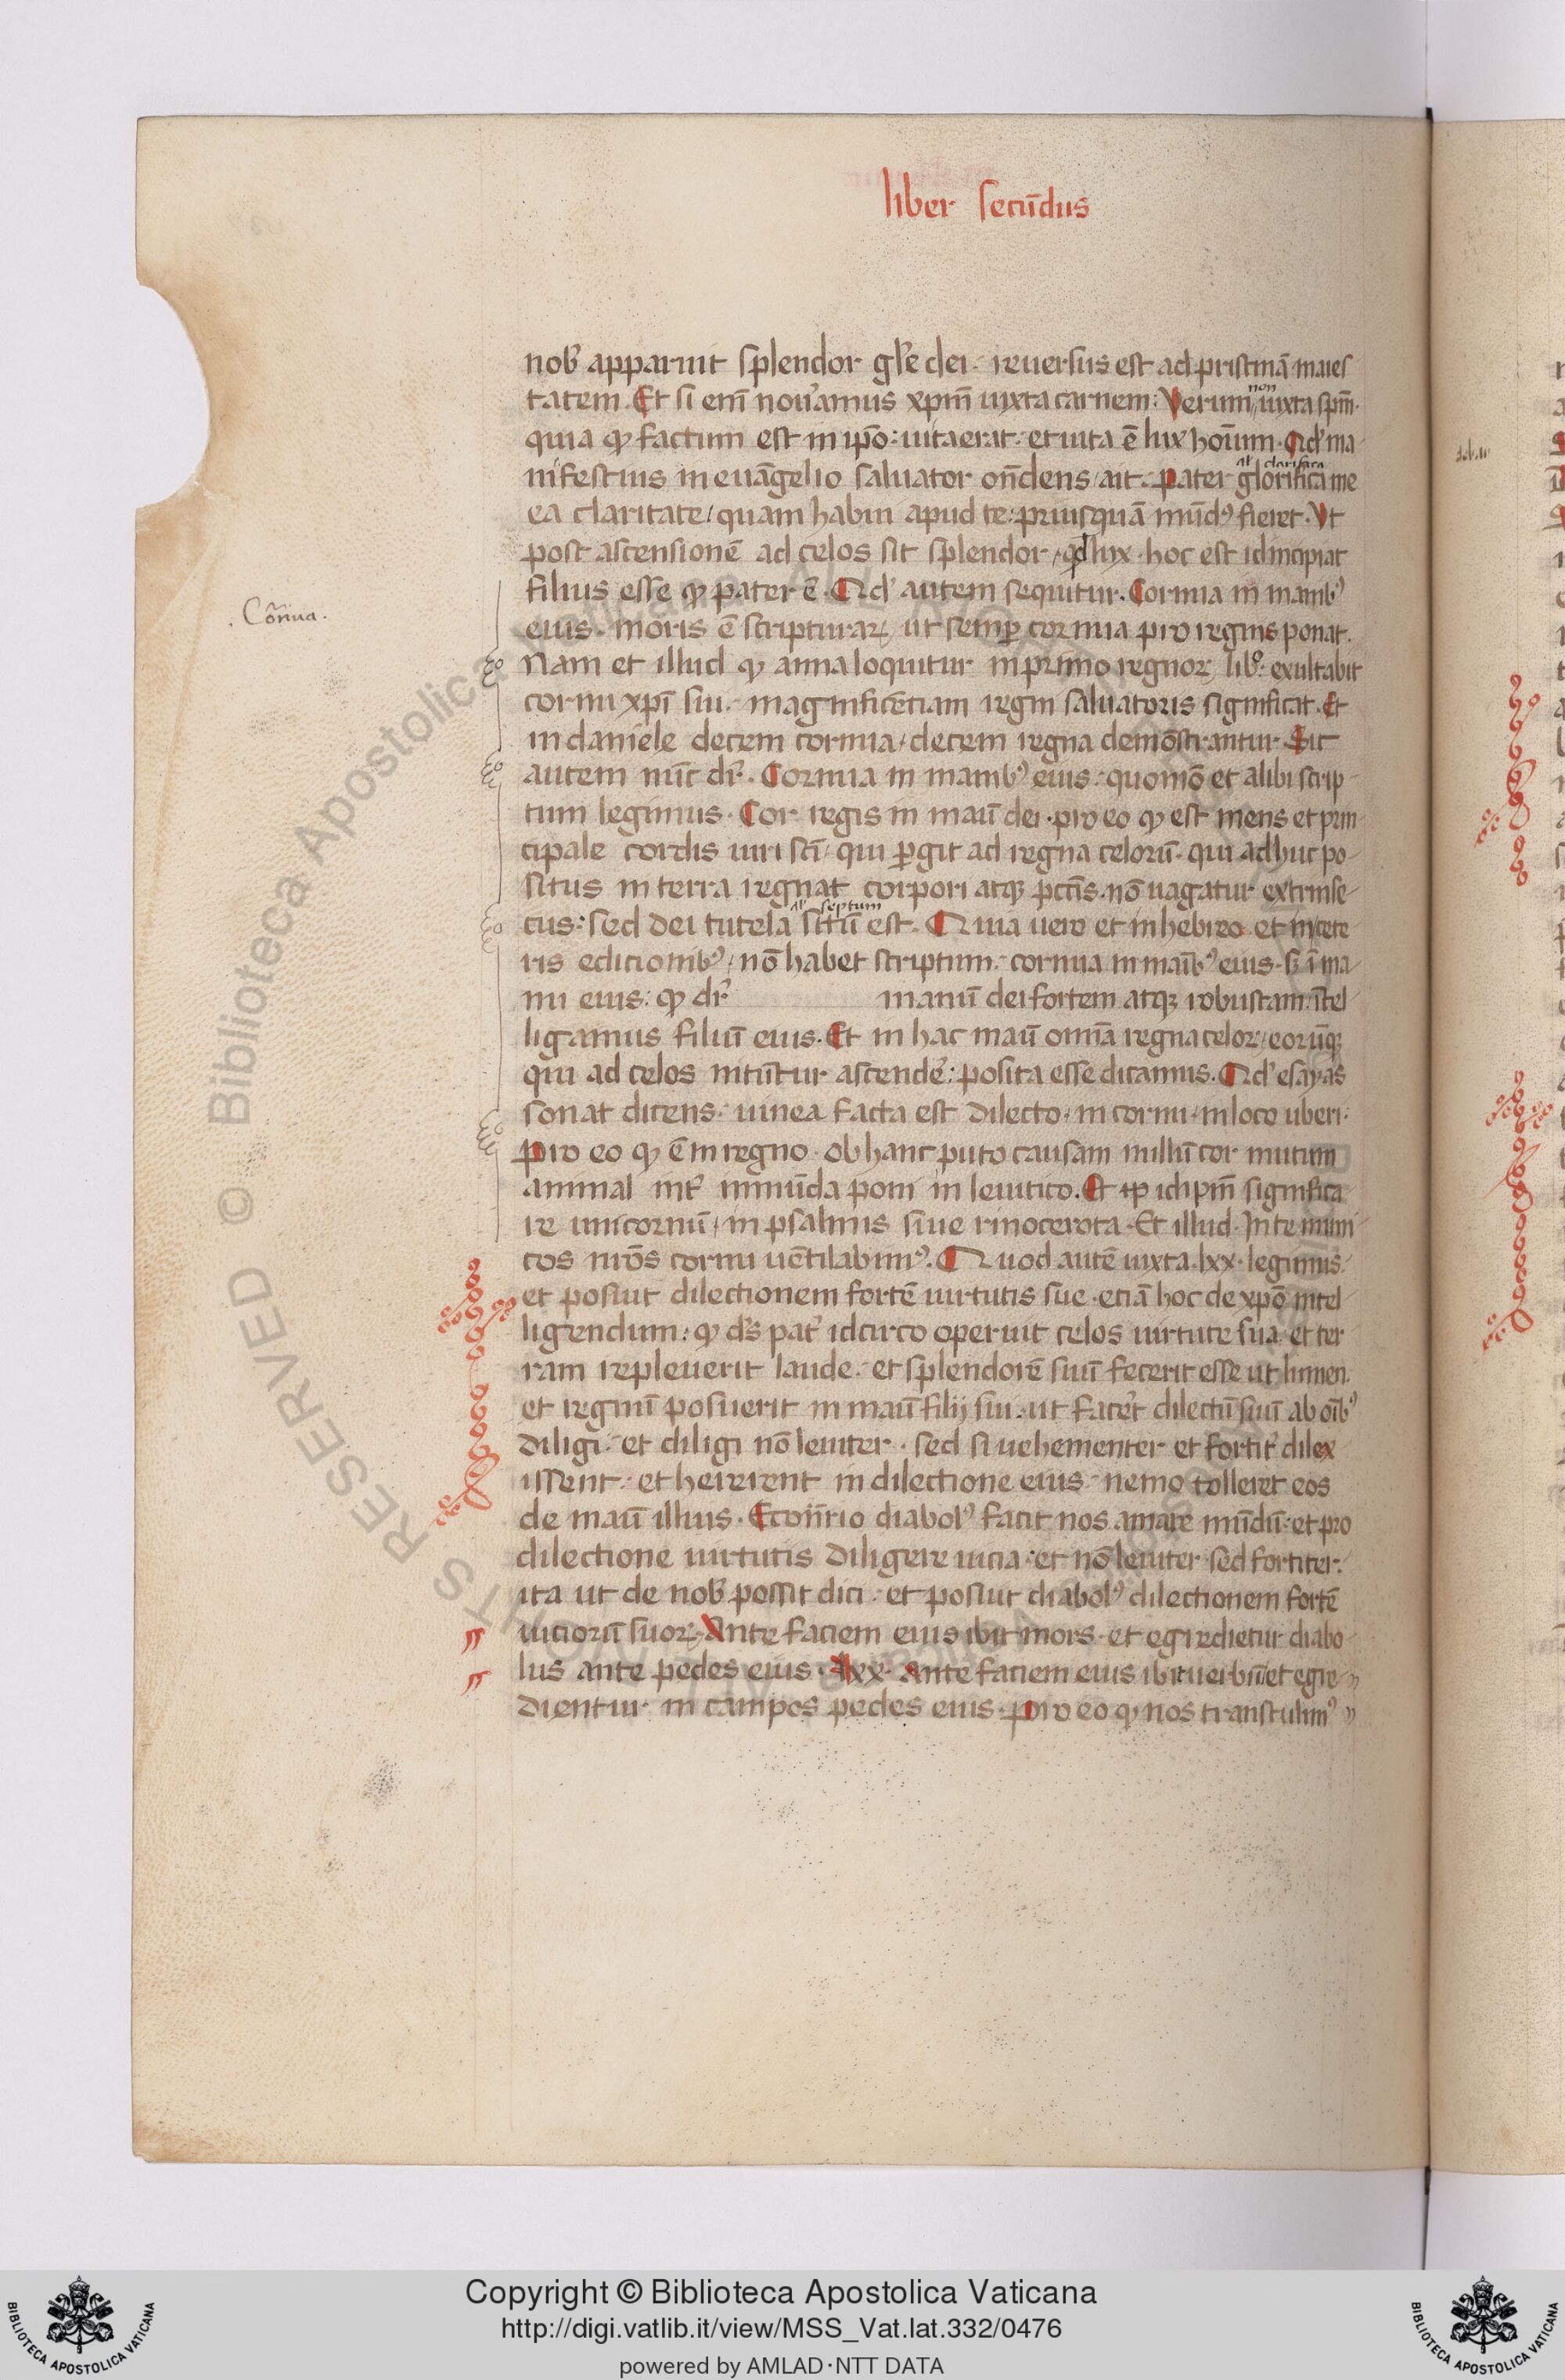 liber secūdus
nob̄ apparuit splendor gl̄e dei· reuersus est ad pristinā maies
tatem. Et si enī nouꝰamus xp̄m iuxta carnem: Verum non iuxta sp̄m·
quia ꝙ factum est in ip̄o: uita erat: et uita ē lux hoīum. Qd' ma-
nifestius in euāgelio saluator on̄dens ait: Pater al' clarifica glorifica me
ea claritate/ quam habui apud te: priusquā mūdꝰ fieret. Vt
post ascensionē ad celos sit splendor qd lux· hoc est id incipiat
filius esse ꝙ pater ē. Qd' autem sequitur. Cornua in manibꝰ
eius· moris ē scripturaꝝ ut semꝑ cornua pro regnis ponat.
Nam et illud ꝙ anna loquitur in primo regnoꝝ lib̊: exultabit
cornu xp̄i sui: magnificentiam regni saluatoris significat. Et
in daniele decem cornua/ decem regna demōstrantur. Sic
autem nūc dr̄. Cornua in manibꝰ eius: quomō et alibi scrip-
tum legimus. Cor regis in manū dei· pro eo ꝙ est mens et prin-
cipale cordis uiri sc̄i/ qui ꝑgit ad regna celorū· qui adhuc po-
situs in terra regnat corpori atqꝫ pctīs· nō uagatur extrinse-
cus: sed dei tutela al' septum sitū est. Quia uero et in hebreo et in cete
ris edicionibꝰ/ nō habet scriptum: cornua in manibꝰ eius· sꝫ ī ma-
nu eius: ꝙ dr̄ manū dei fortem atqꝫ robustam: ītel-
ligamus filiū eius. Et in hac manū omīa regna celoꝝ/ eorūqꝫ
qui ad celos nitūtur ascendē: posita esse dicamus. Qd' esayas
sonat dicens: uinea facta est dilecto· in cornu· in loco uberi:
Pro eo ꝙ ē in regno· ob hanc puto causam nullū cor mutum
animal int̄ inmūda poni in leuitico. Et xp̄ idip̄m significa
re unicornū/ in psalmis siue rinocerota· Et illud· In te inimi-
cos nr̄os cornu uētilabimꝰ. Quod autē iuxta· lxx· legimus:
et posuit dilectionem fortē uirtutis sue· etiā hoc de xp̄o intel-
ligendum: ꝙ ds̄ pat' idcirco operuit celos uirtute sua· et ter
ram repleuerit laude· et splendorē suū fecerit esse ut lumen·
et regnū posuerit in manū filij sui· ut facēt dilectū suū ab oībꝰ
diligi: et diligi nō leuiter· sed si uehementer et fortit' dilex
issent: et hererent in dilectione eius: nemo tolleret eos
de manū illius. Econr̄io diabolꝰ facit nos amare mūdū: et pro
dilectione uirtutis diligere uicia: et nō leuiter sed fortiter:
ita ut de nob̄ possit dici: et posuit diabolꝰ dilectionem fortē
uiciorū suoꝝ. Ante faciem eius ibit mors· et egredietur diabo-
lus ante pedes eius. Lxx· Ante faciem eius ibit uerbū: et egre-
dientur in campos pedes eius· Pro eo ꝙ nos transtulimꝰ
· Cōrnua ·
© Biblioteca Apostolica Vaticana
RESERVED
Copyright © Biblioteca Apostolica Vaticana
http://digi.vatlib.it/view/MSS_Vat.lat.332/0476
powered by AMLAD·NTT DATA
BIBLIOTECA APOSTOLICA VATICANA
BIBLIOTECA APOSTOLICA VATICANA